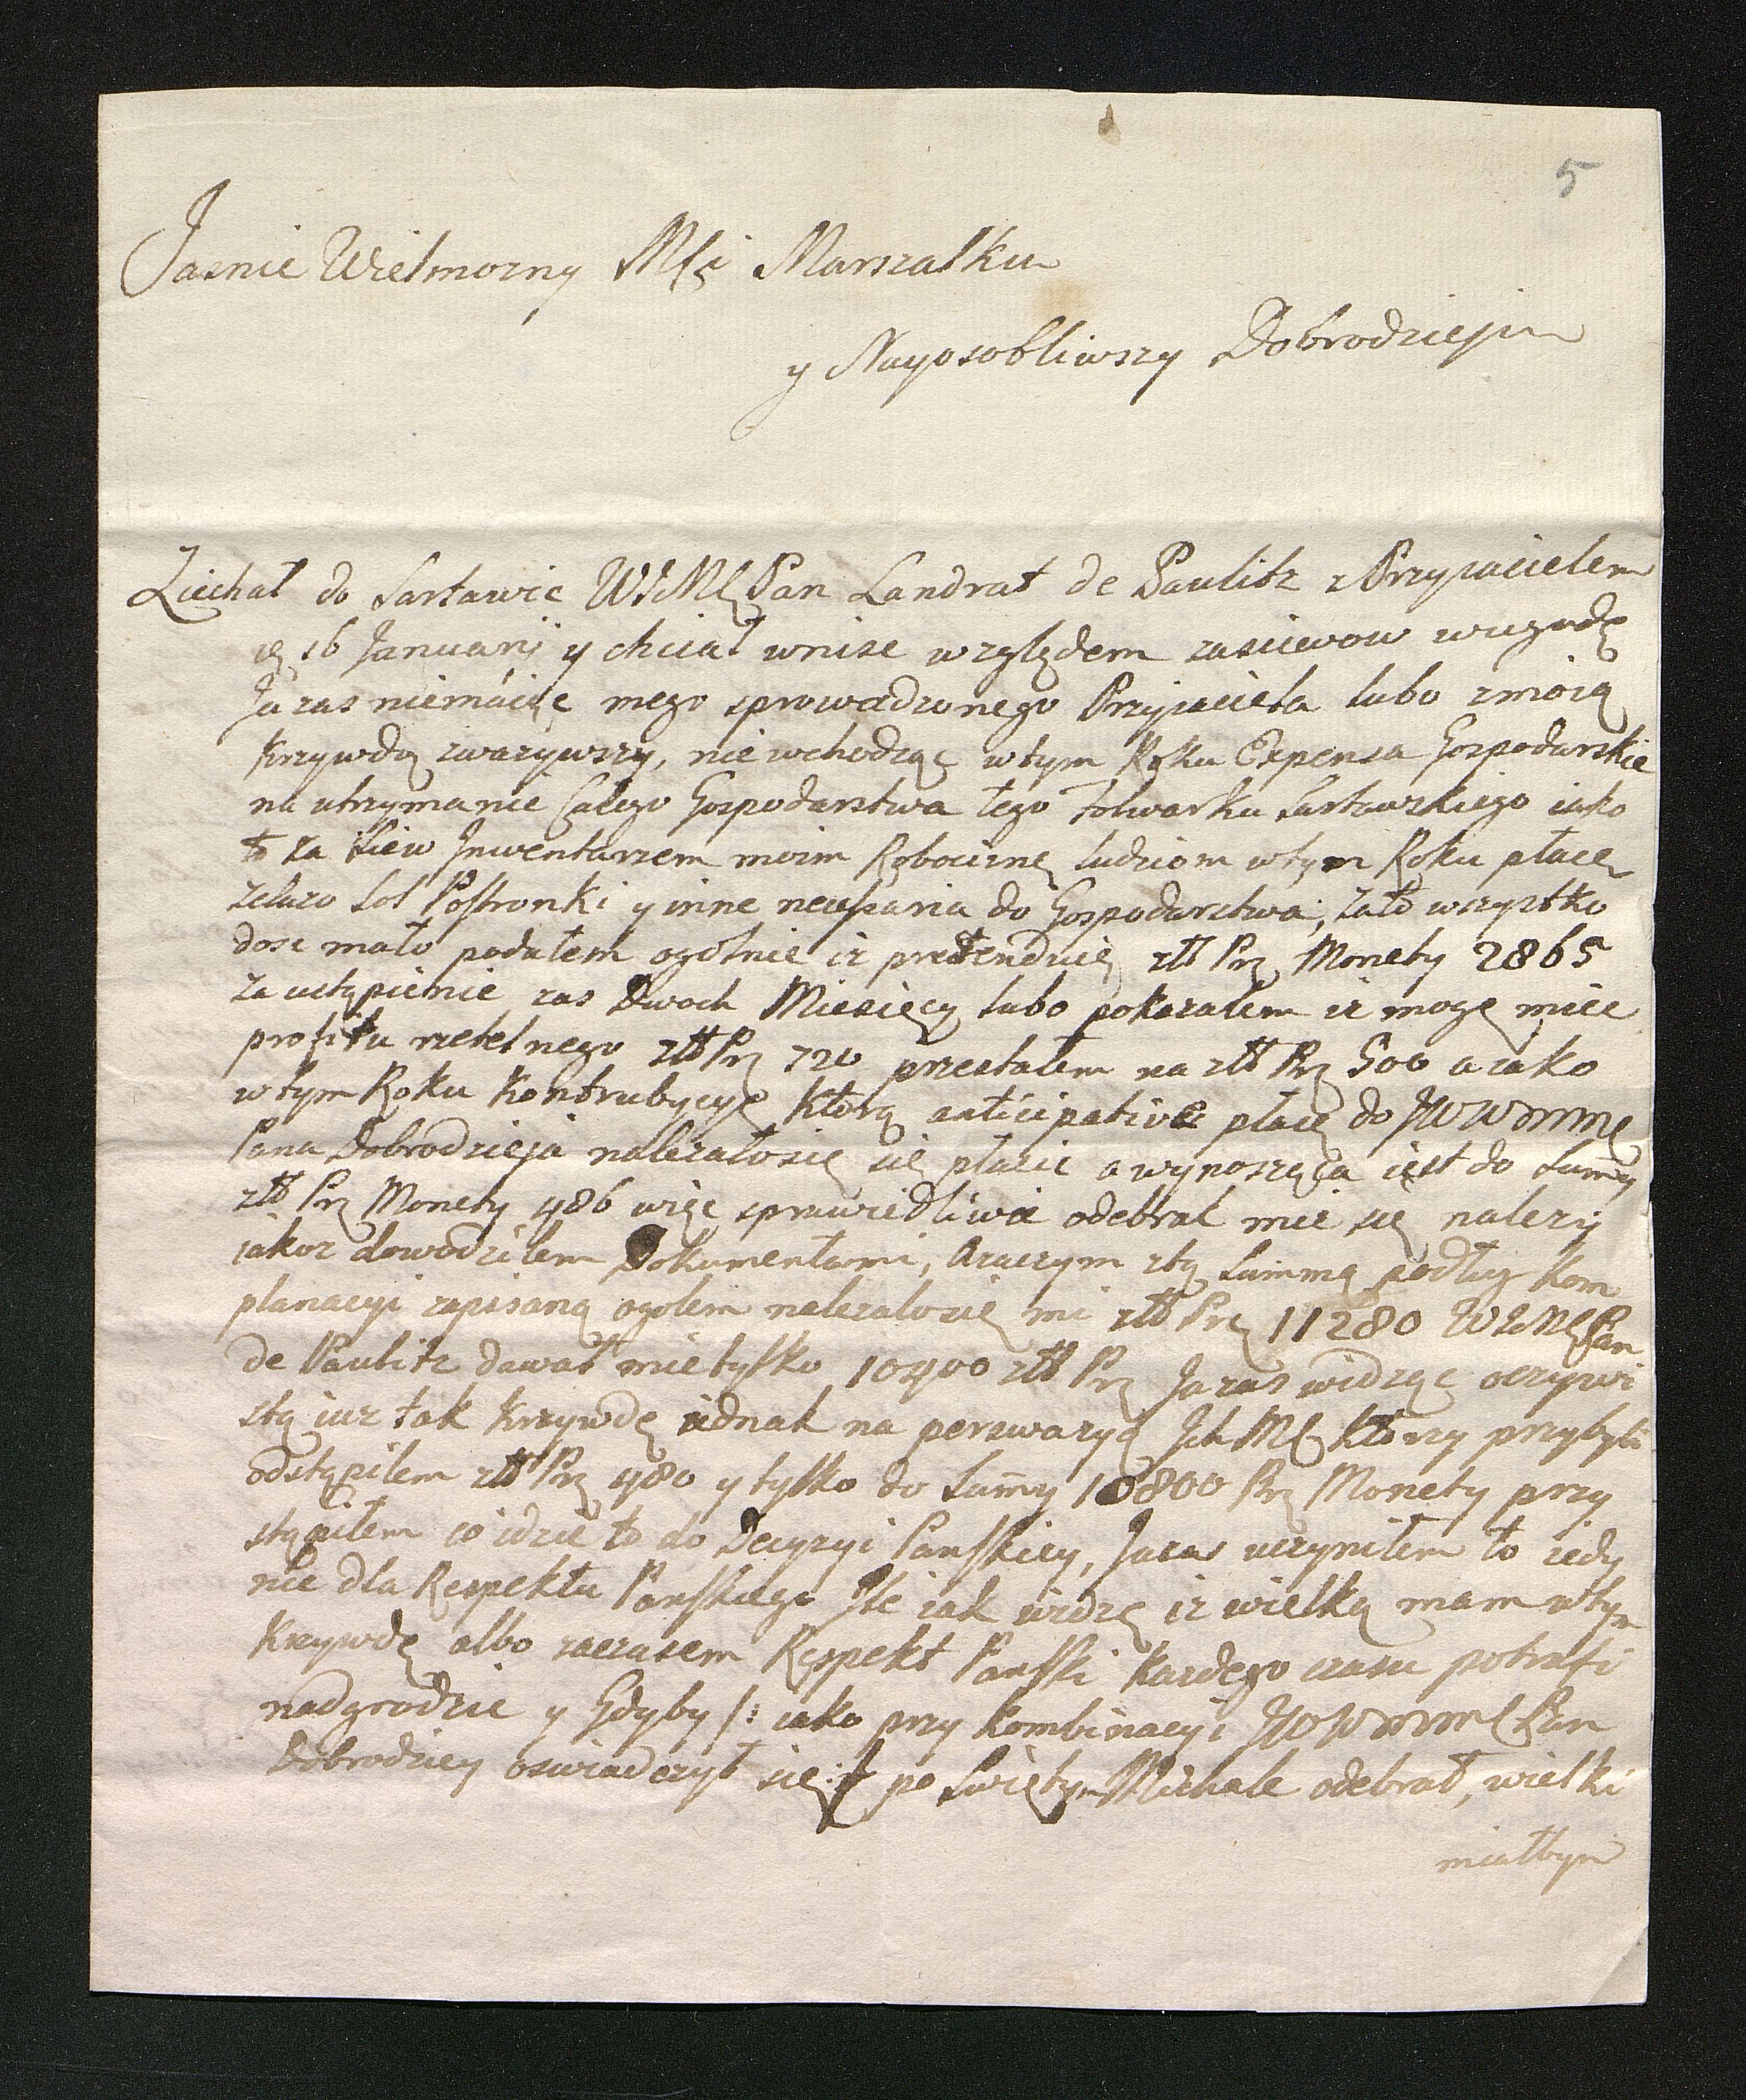 5
Jasnie Wielmozny Msci Marszałku
y Nayosobliwszy Dobrodzieju
Ziechał do Sartawic WJMę Pan Landrat de Paulitz z Przyiacielem
16 Januarij y chciał wnisc względem zasiewow wugodę
Ja zas niemaiąc mego sprowadzonego Przyjaciela lubo zmoią
krzywdą zwazywszy, nie wchodząc wtym Roku Expensa Gospodarskie
na utrzymanie Całego Gospodarstwa tego Folwarku Sartawskiego iako
to za siew Jnwentarzem moim Robociznę ludziom wtym Roku płacę
zelazo Sol Postronki y inne do Gospodarstwa, zato wszystko
dosc mało podałem ogolnie iz pretenduię złł Prz Monety 2865
za ustąpienie zas Dwoch Miesięcy lubo pokazałem iz mogę miec
profitu rzetelnego złł Prz 720 przestałem na złł Prz 500 a iako
wtym Roku Kontrubycyę ktorą anticipative płacę do JWWMMę
Pana Dobrodzieja nalezałosię się płacic a wynosząca iest do Sum̄y
złł Prz Monety 486 więc sprawiedliwie odebrac mie się nalezy
iakoz dowodziłem Dokumentami, Azaczym ztą Summą podług kom
planacyi zapisaną ogołem nalezałosię mi złł Prz 11280 WJMę Pan
de Paulitz dawał mie tylko 10400 złł Prz Ja zas widząc oczywi
stą iuz tak krzywdę iednak na perswazyą Jch Mę ktorzy przybyli
odstąpiłem złł Prz 480 y tylko do Sum̄y 10800 Prz Monety przy
stąpiłem co idzie to do Decyzyi Panskiey, Jazas uczyniłem to iedy
nie dla Respektu Panskiego Jle iak widzę iz wielką mam wtym
krzywdę albo zaczasem Respekt Panski kazdego czasu potrafi
nadgrodzic y Gdyby /: iako przy kombinacyi JWWMMę Pan
Dobrodziey oswiadczył się :/ po Swiętym Michale odebrał, wielki
miałbym